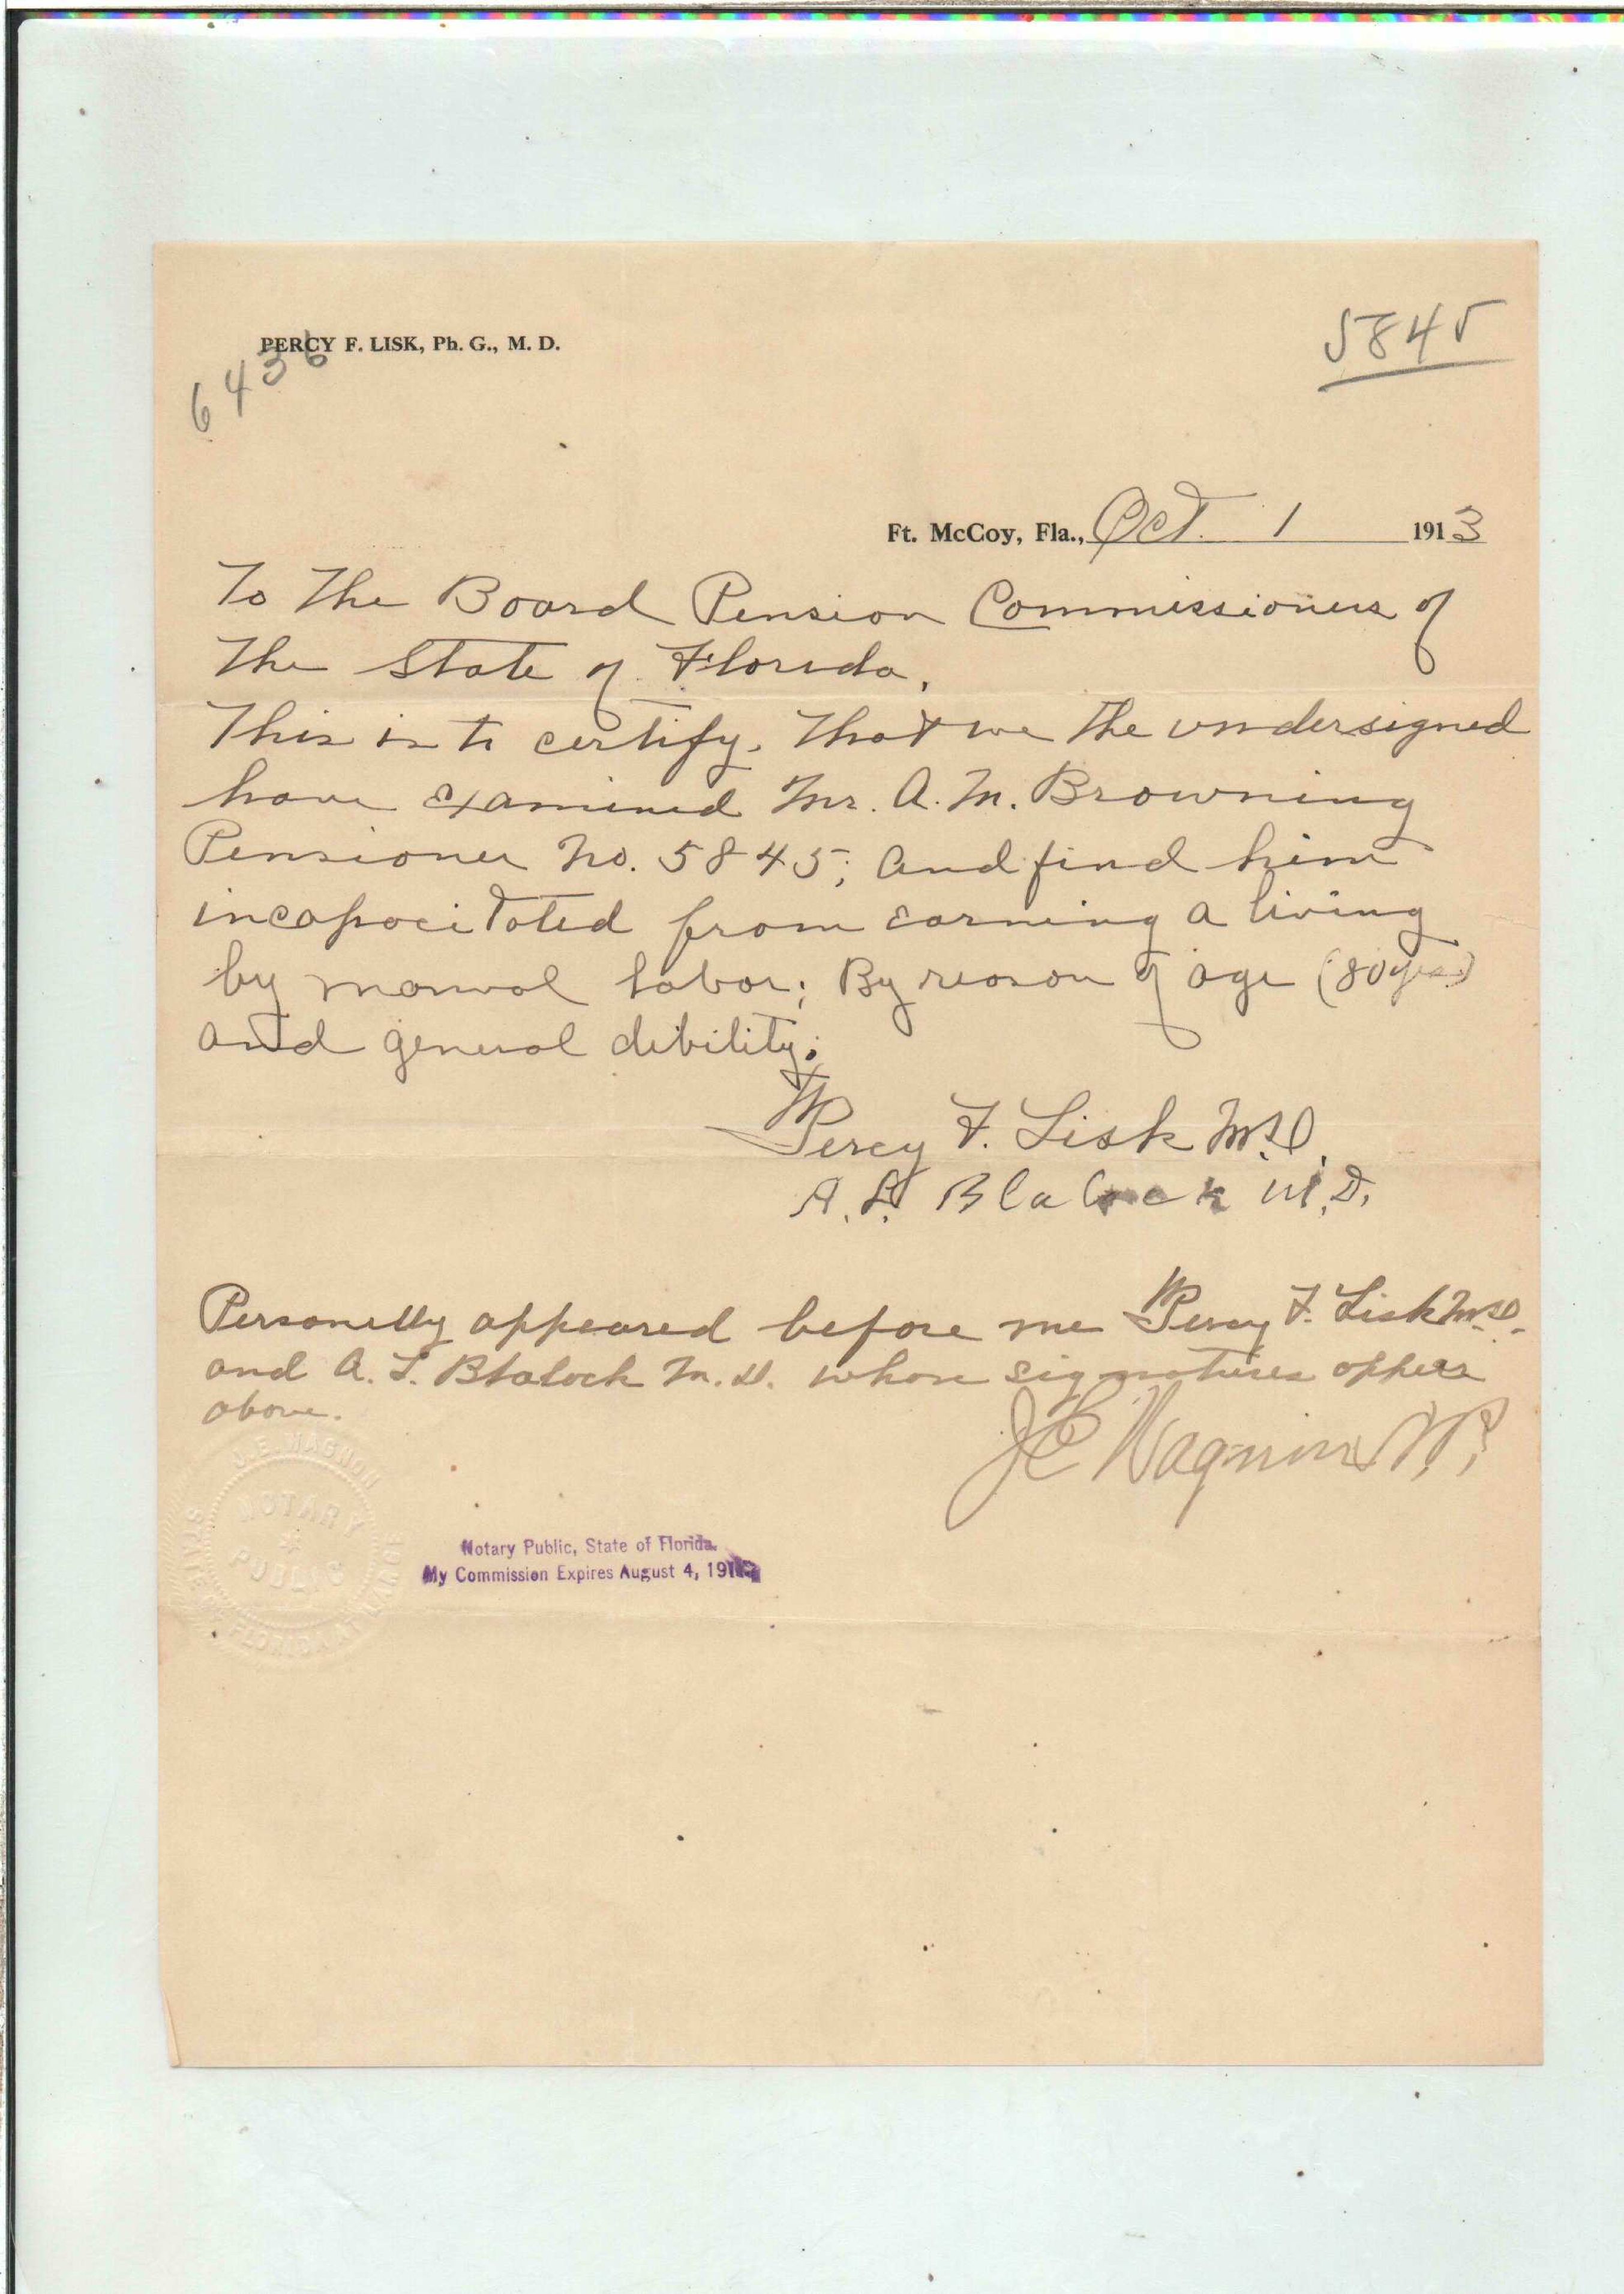 PERCY F. LISK, Ph. G., M. D.
6436
5845
Ft. McCoy, Fla., Oct. 1 1913
To The Board Pension Commissioners of
The State of Florida.
This is to certify. That we the undersigned
have examined Mr. A. M. Browning
Pensioner No. 5845; and find him
incapacitated from earning a living
by manual labor; By reason of age (80 yrs.)
and general debility.
W Percy F. Lisk M.D.
A. L. Blalock M.D.
Personelly appeared before me W Percy F. Lisk M.D.
and A. L. Blalock M.D. whose signatures appear
above.
J E Wagnon N.P.
J. E. WAGNON
NOTARY
PUBLIC
STATE OF FLORIDA AT
Notary Public, State of Florida.
My Commission Expires August 4, 19